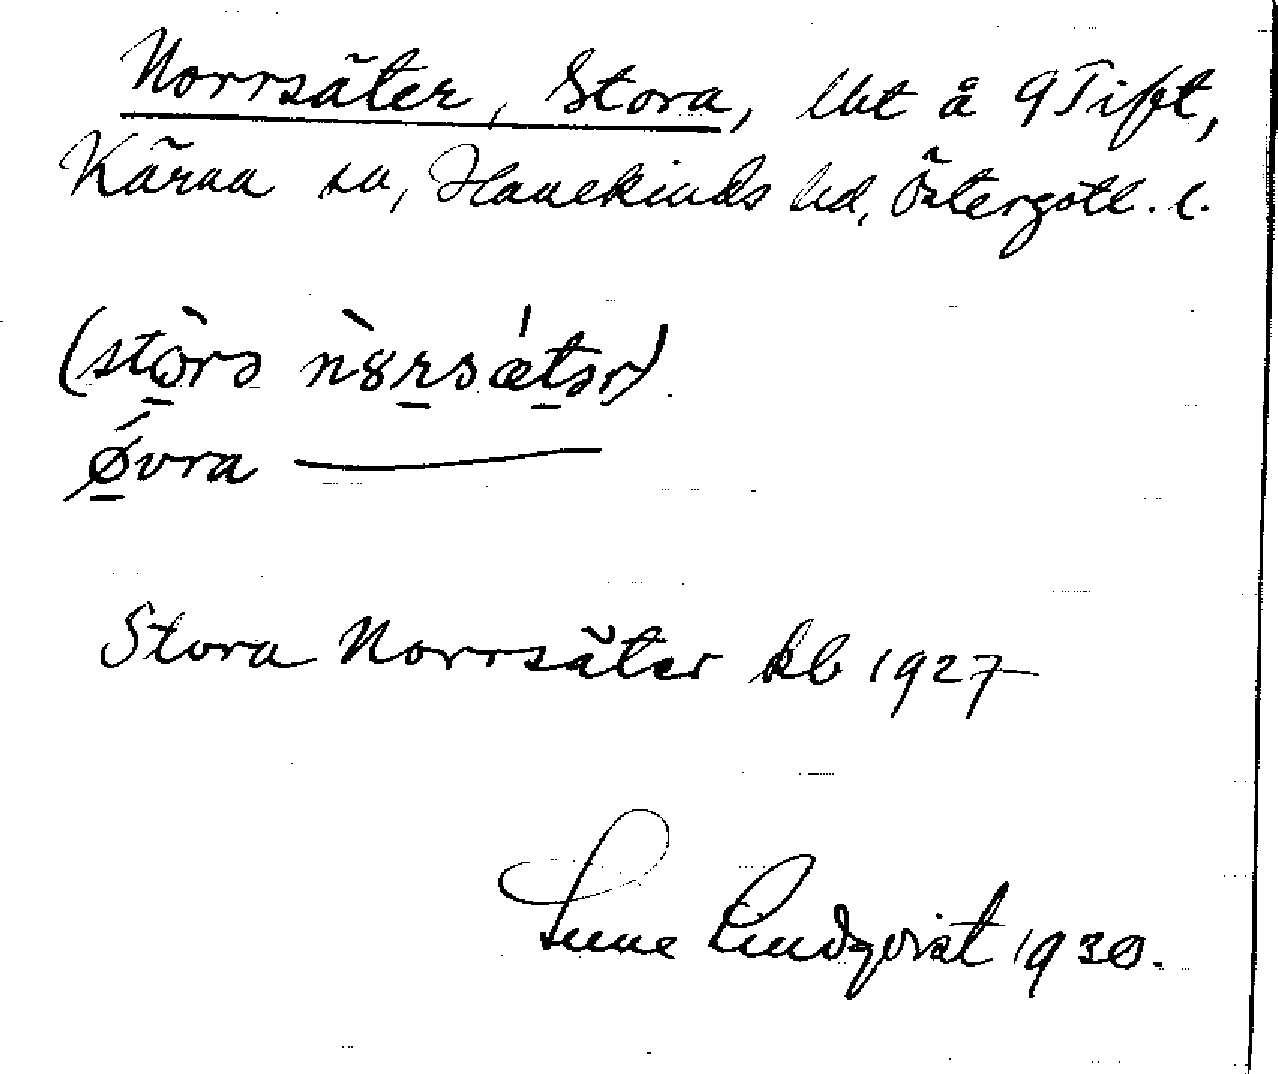 Norrsäter, Stora, lht å 9 Tift,
Kärna sn, Hanekinds hd, Östergötl. l.
(stò̱rə nò̱rsǽtər)
Ǿvra ———
Stora Norrsäter kb 1927
Sune Lindqvist 1930.